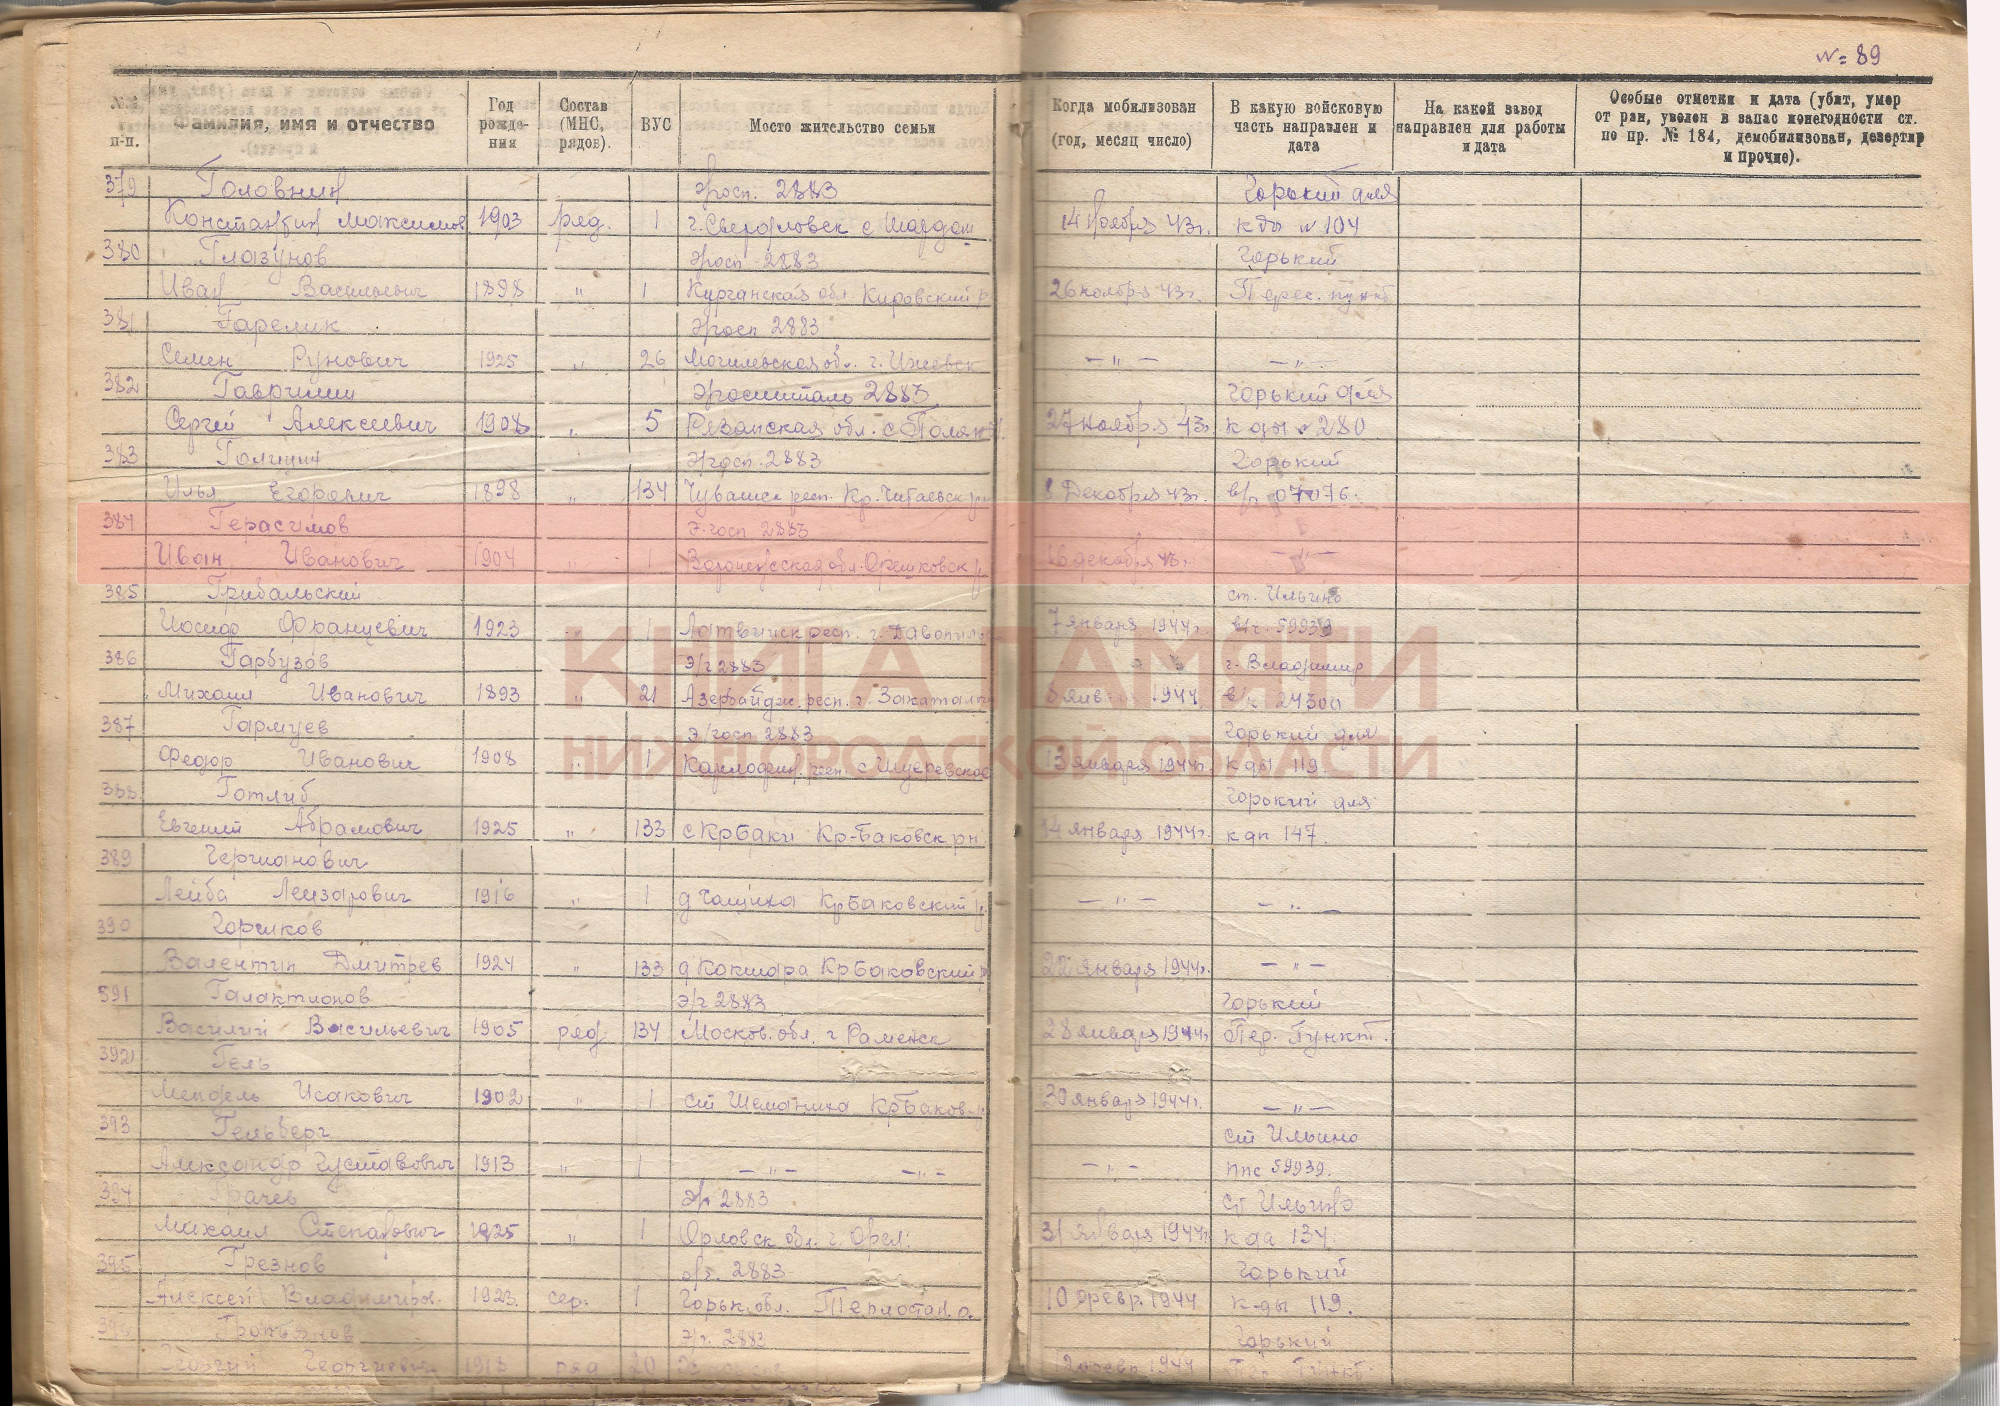 № 89
№№ п-п. Фамилия, имя и отчество Год рожде-ния Состав (МНС, рядов). ВУС Мосто жительство семьи Когда мобилизован (год, месяц число) В какую войсковую часть направлен и дата На какой завод направлен для работы и дата Особые отметки и дата (убит, умер от ран, уволен в запас по негодности ст. по пр. № 184, демобилизован, дезертир и прочие).
379 Головнин Эгосп. 2883 Горький для
Константин Максимов 1903 ряд. 1 г. Свердловск с 14 Ноября 43г. кды № 104
380 Глазунов Эгосп 2883 Горький
Иван Васильевич 1898 " 1 Курганская обл. Кировский р 26 ноября 43г. Перес. пункт
381 Гарелик Эгосп 2883
Семен Рунович 1925 " 26 Могилевская обл. г. Ижевск — " — — " —
382 Гаврилин Эгоспиталь 2883 Горький для
Сергей Алексеевич 1908 " 5 Рязанская обл. с Поляны 27 ноября 43г. кды № 280
383 Голицин Эгосп. 2883 Горький
Илья Егорович 1898 " 134 Чувашск респ. Кр. Читаевск рн 8 Декабря 43г. в/ч 07076.
384 Герасимов Э.госп 2883
Иван Иванович 1904 " 1 Воронежская обл. 16 декабря 43г. — " —
385 Грибальский ст. Ильино
Иосиф Францевич 1923 " 1 Латвийск респ. г. 7 января 1944г. в/ч. 59939
386 Гарбузов Э/г 2883 г. Владимир
Михаил Иванович 1893 " 21 Азербайдж. респ. г. Закаталы 8 янв 1944 в/ч 24300
387 Гармуев Э/госп 2883 Горький для
Федор Иванович 1908 1 респ. с 13 января 1944г. кды 119.
388 Готлиб Горький для
Евгений Абрамович 1925 " 133 с КрБаки Кр-Баковск рн. 14 января 1944г. к дп 147.
389 Германович
Лейба Лейзарович 1916 " 1 д КрБаковский р. — " — — " —
390 Горшков
Валентин Дмитрев 1924 " 133 д Кокшара КрБаковский р 22 января 1944г. — " —
391 Галактионов Э/г 2883 Горький
Василий Васильевич 1905 ряд. 134 Москов. обл. г Раменск 28 января 1944г. Пер. Пункт.
392 Гель
Мендель Исакович 1902 " 1 ст Шеманиха КрБаков. р. 30 января 1944г. — " —
393 Гельберг ст Ильино
Александр Густавович 1913 " 1 — " — — " — — " — ппс 59939.
394 Грачев Э/г 2883 Ст Ильино
Михаил Степанович 1925 " 1 Орловск обл. г. Орел. 31 января 1944г. к да 134.
395 Грезнов Э/г. 2883 Горький
Алексей Владимиров. 1923. сер. 1 Горьк. обл. Теплостан. р. 10 февр. 1944 к-ды 119.
Э/г. 2883 Горький
Георгий Георгиевич 1918 ряд 20 12 февр 1944 Пер. Пункт.
КНИГА ПАМЯТИ
НИЖЕГОРОДСКОЙ ОБЛАСТИ